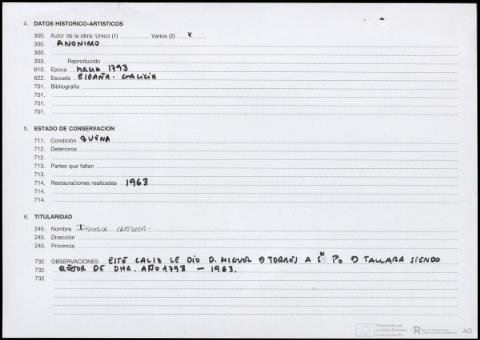 4. DATOS HISTORICO-ARTISTICOS
300. Autor de la obra: Unico (1) Varios (2) x
300. ANONIMO
300.
303. Reproducido
610. Epoca HACIA 1793
622. Escuela ESPAÑA. GALICIA
701. Bibliografía
701.
701.
701.
5. ESTADO DE CONSERVACION
711. Condición BUENA
712. Deterioros
712.
713. Partes que faltan
713.
714. Restauraciones realizadas 1963
714.
714.
6. TITULARIDAD
245. Nombre IGLESIA CATOLICA
245. Dirección
245. Provincia
732. OBSERVACIONES ESTE CALIZ LE DIO D. MIGUEL D TORRES A Sn Po D TALLARA SIENDO
732. RETOR DE DHA. AÑO 1793 - 1963.
732.
Financiado por
la Unión Europea
AG